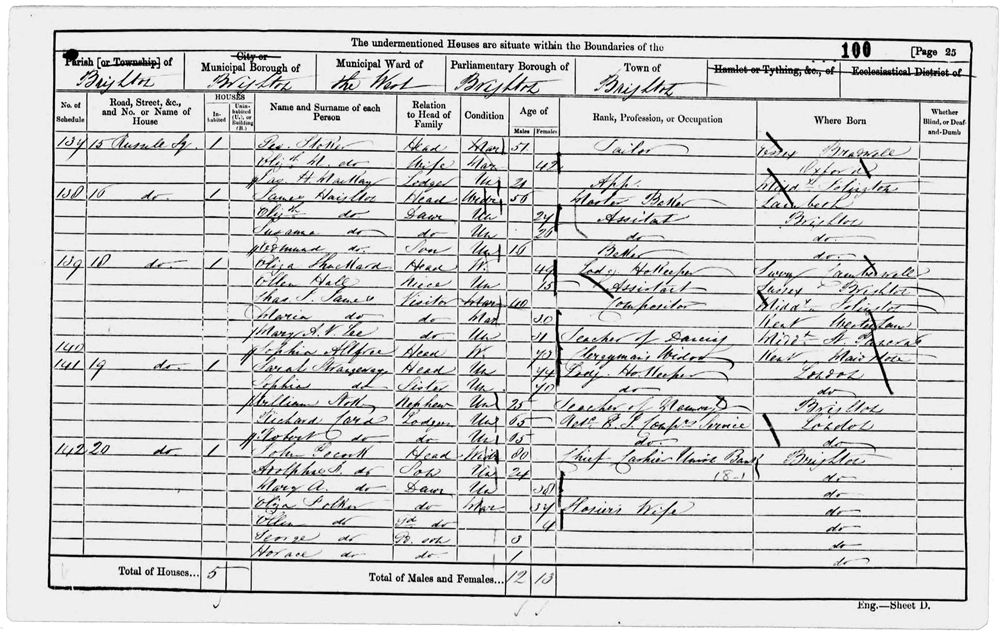 The undermentioned Houses are situate within the Boundaries of the 100 [Page 25
Parish [or Township] of City or Municipal Borough of Municipal Ward of Parliamentary Borough of Town of Hamlet or Tything, &c., of Ecclesiastical District of
Brighton Brighton the West Brighton Brighton
No. of Schedule Road, Street, &c., and No. or Name of House HOUSES Inhabited Uninhabited (U.), or Building (B.) Name and Surname of each Person Relation to Head of Family Condition Age of Males Females Rank, Profession, or Occupation Where Born Whether Blind, or Deaf-and-Dumb
137 15 Russell Sq. 1 Geo. Head Mar 51 Tailor Essex
Elizth M. do Wife Mar 42 Oxford
Jas H Lodger Un 21 App. Middx Islington
138 16 do. 1 James Head Widr 56 Master Baker Lambeth
Elizth do Daur Un 24 Assistant Brighton
Susanna do do Un 20 do do.
Edmund do Son Un 16 Baker do.
139 18 do. 1 Eliza Head W. 49 Lodg Ho Keeper Surrey Camberwell
Ellen Hall Niece Un 15 Assistant Sussex Brighton
Chas. J. James Visitor Mar 40 Compositor Middx Islington
Maria do do Mar 30 Kent
Mary A. V. Lee do Un 31 Teacher of Dancing Middx St Pancras
140 Sophia Allfree Head W. 72 Clergyman's Widow Kent Maidstone
141 19 do. 1 Sarah Strangeways Head Un 74 Lodg. Ho Keeper London
Sophia do Sister Un 70 do do
William Nott Nephew Un 25 Teacher of Brighton
Richard Card Lodger Un 65 Service London
Robert do do Un 65 do. do
142 20 do 1 John Head Widr 80 Chief Cashier Union Bank Brighton
Adolphus do Son Un 24 do
Mary A. do Daur Un 38 do
Eliza do Mar 34 Hosier's Wife do
Ellen do Gd do 4 do
George do G. son 3 do
Horace do do. 1 do
Total of Houses... 5 Total of Males and Females... 12 13
Eng.—Sheet D.